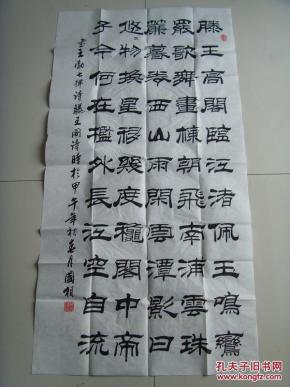 滕王高閣臨江渚佩玉鳴鸞
罷歌舞畫棟朝飛南浦雲珠
簾暮卷西山雨閑雲潭影日
悠〻物換星移幾度穐閣中帝
子今何在檻外長江空自流
王勃七律詩滕王閣詩時於甲午年初春月國相